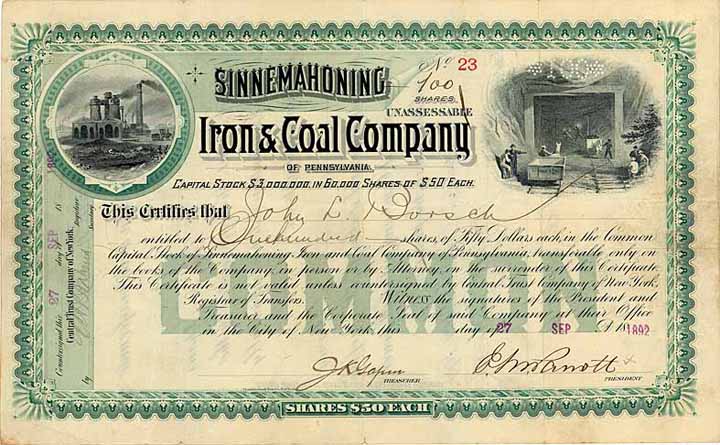 No 23
100
SHARES
UNASSESSABLE
SINNEMAHONING
Iron & Coal Company
OF PENNSYLVANIA.
CAPITAL STOCK $3,000,000, IN 60,000 SHARES OF $50 EACH.
This Certifies that John L. Dorsch
entitled to One hundred shares of Fifty Dollars each, in the Common
Capital Stock of Sinnemahoning Iron and Coal Company of Pennsylvania, transferable only on
the books of the Company, in person or by Attorney, on the surrender of this Certificate.
This Certificate is not valid unless countersigned by Central Trust Company of New York,
Registrar of Transfers. Witness the signatures of the President and
Treasurer and the Corporate Seal of said Company at their Office
in the City of New York this day of 27 SEP A.D. 18 1892
COMMON
TREASURER
PRESIDENT
SHARES $50 EACH
Countersigned this 27 day of SEP 18
Central Trust Company of New York, Registrar
by Secretary